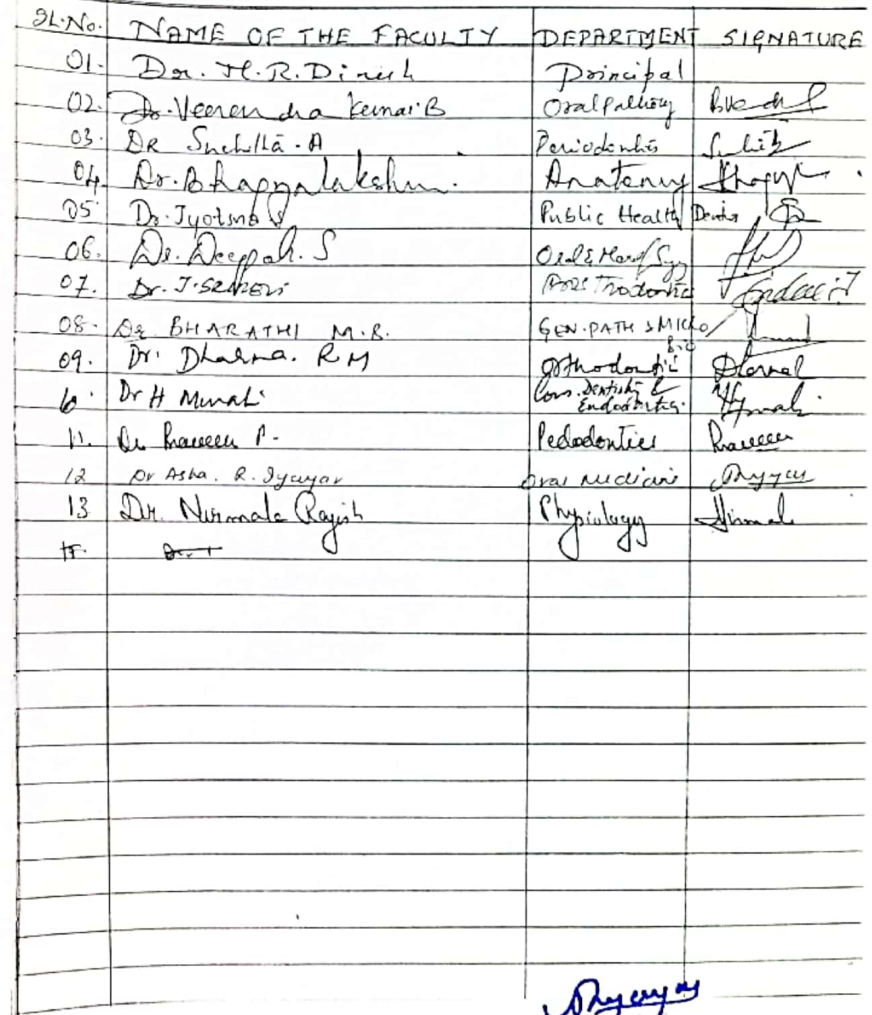 Sl.No. NAME OF THE FACULTY DEPARTMENT SIGNATURE
01. Dr. H.R. Dinesh Principal
02. Dr. Veerendra Kumar B Oral Pathology
03. DR A Periodontics
04. Dr. Bhagyalakshmi. Anatomy
05 Dr. Jyotsna Public Health Dents
06. Dr. Deepak. S Oral & Surg
07. Dr. J.
08. DR BHARATHI M.R. GEN. PATH & MICRO
09. Dr. Dharma. R M Orthodontic
10. Dr H Murali Cons. Dentistry & Endodontics. Murali
11. Dr Praveen P. Pedodontics Praveen
12 Dr Asha. R. Iyengar Oral Medicine
13 Dr. Nirmala Rajesh Physiology Nirmala